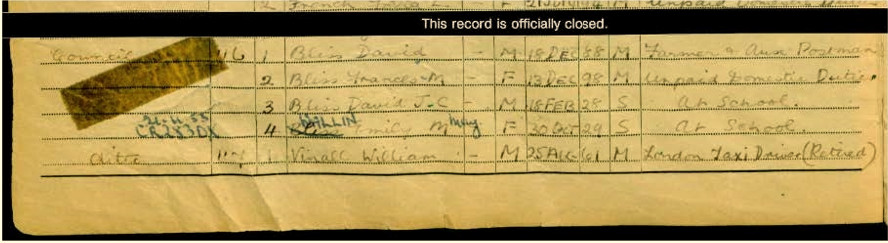 2 French L. - F 21 JUN 94 M Unpaid Domestic Duties
This record is officially closed.
Council 116 1 Bliss David - M 18 DEC 88 M Farmer & Aux Postman
2 Bliss Frances M - F 13 DEC 98 M Unpaid Domestic Duties
3 Bliss David J-C - M 18 FEB 28 S At School.
CR283DX 4 Bliss DALLIN Emily M May. F 30 OCT 29 S At School.
ditto 117 1 Vinall William - M 25 AUG 61 M London Taxi Driver (Retired)